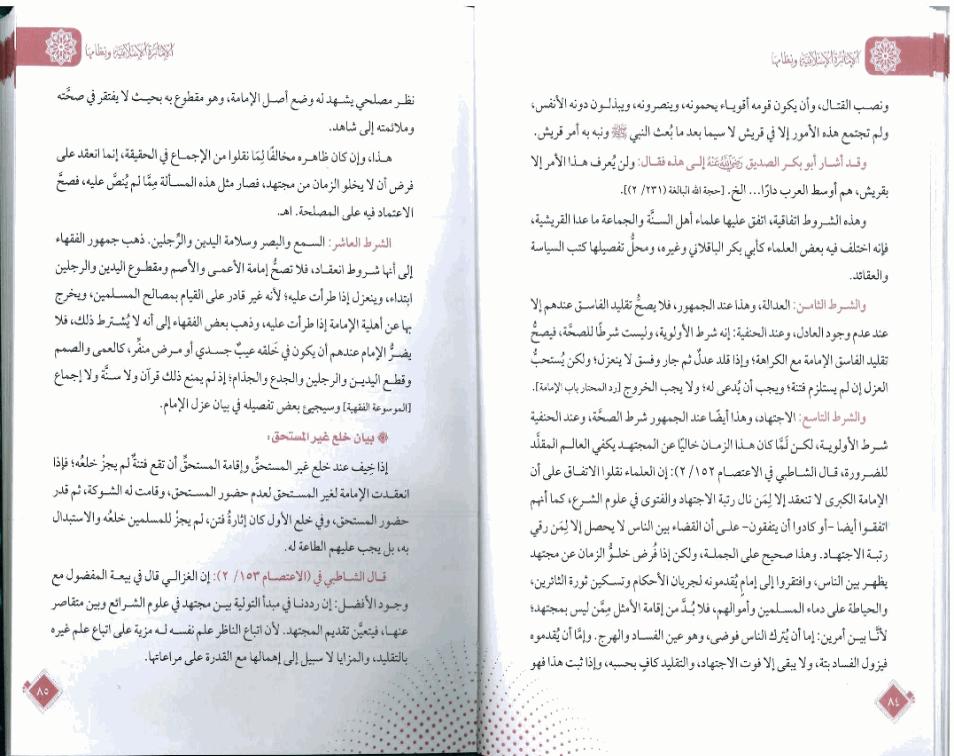 الإمارة الإسلامية ونظامها
ونصب القتال، وأن يكون قومه أقوياء يحمونه، وينصرونه، ويبذلون دونه الأنفس،
ولم تجتمع هذه الأمور إلا في قريش لا سيما بعد ما بُعث النبي ﷺ ونبه به أمر قريش.
وقد أشار أبو بكر الصديق رَضِيَ اللَّهُ عَنْهُ إلى هذه فقال: ولن يُعرف هذا الأمر إلا
بقريش، هم أوسط العرب دارًا... الخ. [حجة الله البالغة (٢٣١/ ٢)].
وهذه الشروط اتفاقية، اتفق عليها علماء أهل السنَّة والجماعة ما عدا القريشية،
فإنه اختلف فيه بعض العلماء كأبي بكر الباقلاني وغيره، ومحلُّ تفصيلها كتب السياسة
والعقائد.
والشرط الثامن: العدالة، وهذا عند الجمهور، فلا يصحُّ تقليد الفاسق عندهم إلا
عند عدم وجود العادل، وعند الحنفية: إنه شرط الأولوية، وليست شرطًا للصحَّة، فيصحُّ
تقليد الفاسق الإمامة مع الكراهة؛ وإذا قلد عدلٌ ثم جار وفسق لا ينعزل؛ ولكن يُستحبُّ
العزل إن لم يستلزم فتنة؛ ويجب أن يُدعى له؛ ولا يجب الخروج [رد المحتار باب الإمامة].
والشرط التاسع: الاجتهاد، وهذا أيضًا عند الجمهور شرط الصحَّة، وعند الحنفية
شرط الأولوية، لكن لَمَّا كان هذا الزمان خاليًا عن المجتهد يكفي العالم المقلَّد
للضرورة، قال الشاطبي في الاعتصام ١٥٢/ ٢): إن العلماء نقلوا الاتفاق على أن
الإمامة الكبرى لا تنعقد إلا لِمَن نال رتبة الاجتهاد والفتوى في علوم الشرع، كما أنهم
اتفقوا أيضا -أو كادوا أن يتفقون- على أن القضاء بين الناس لا يحصل إلا لِمَن رقي
رتبة الاجتهاد. وهذا صحيح على الجملة، ولكن إذا فُرض خلوُّ الزمان عن مجتهد
يظهر بين الناس، وافتقروا إلى إمامٍ يُقدمونه لجريان الأحكام وتسكين ثورة الثائرين،
والحياطة على دماء المسلمين وأموالهم، فلا بُدَّ من إقامة الأمثل مِمَّن ليس بمجتهد؛
لأنَّا بين أمرين: إما أن يُترك الناس فوضى، وهو عين الفساد والهرج. وإمَّا أن يُقدموه
فيزول الفساد بتة، ولا يبقى إلا فوت الاجتهاد، والتقليد كافٍ بحسبه، وإذا ثبت هذا فهو
٨٤
الإمارة الإسلامية ونظامها
نظر مصلحي يشهد له وضع أصل الإمامة، وهو مقطوع به بحيث لا يفتقر في صحَّته
وملائمته إلى شاهد.
هذا، وإن كان ظاهره مخالفًا لِمَا نقلوا من الإجماع في الحقيقة، إنما انعقد على
فرض أن لا يخلو الزمان من مجتهد، فصار مثل هذه المسألة مِمَّا لم يُنصَّ عليه، فصحَّ
الاعتماد فيه على المصلحة. اهـ.
الشرط العاشر: السمع والبصر وسلامة اليدين والرِّجلين. ذهب جمهور الفقهاء
إلى أنها شروط انعقاد، فلا تصحُّ إمامة الأعمى والأصم ومقطوع اليدين والرجلين
ابتداء، وينعزل إذا طرأت عليه؛ لأنه غير قادر على القيام بمصالح المسلمين، ويخرج
بها عن أهلية الإمامة إذا طرأت عليه، وذهب بعض الفقهاء إلى أنه لا يُشترط ذلك، فلا
يضرُّ الإمام عندهم أن يكون في خَلقه عيبٌ جسدي أو مرض منفِّر، كالعمى والصمم
وقطع اليدين والرجلين والجدع والجذام؛ إذ لم يمنع ذلك قرآن ولا سنَّة ولا إجماع
[الموسوعة الفقهية] وسيجيئ بعض تفصيله في بيان عزل الإمام.
بيان خلع غير المستحق:
إذا خِيف عند خلع غير المستحقِّ وإقامة المستحقِّ أن تقع فتنةٌ لم يجزْ خلعُه؛ فإذا
انعقدت الإمامة لغير المستحق لعدم حضور المستحق، وقامت له الشوكة، ثم قدر
حضور المستحق، وفي خلع الأول كان إثارةُ فتن، لم يجزْ للمسلمين خلعُه والاستبدال
به، بل يجب عليهم الطاعة له.
قال الشاطبي في (الاعتصام ١٥٣/ ٢): إن الغزالي قال في بيعة المفضول مع
وجود الأفضل: إن رددنا في مبدأ التولية بين مجتهد في علوم الشرائع وبين متقاصر
عنها، فيتعيَّن تقديم المجتهد. لأن اتباع الناظر علم نفسه له مزية على اتباع علم غيره
بالتقليد، والمزايا لا سبيل إلى إهمالها مع القدرة على مراعاتها.
٨٥